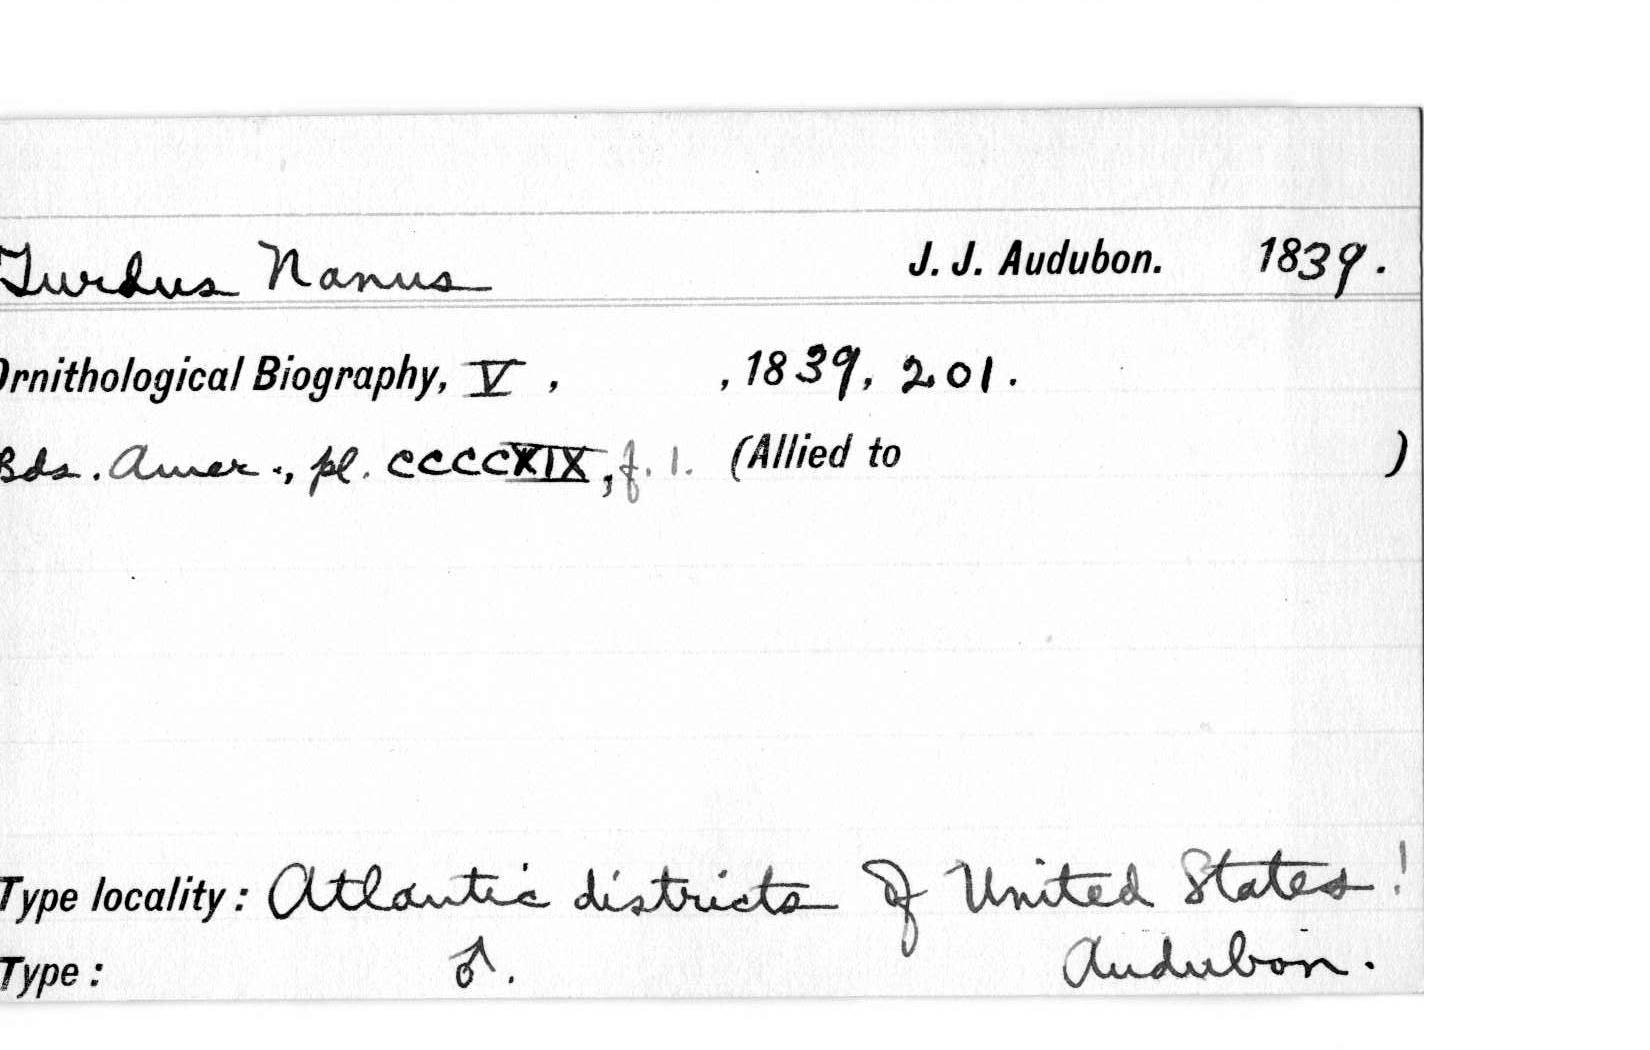 Turdus Nanus J. J. Audubon. 1839.
Ornithological Biography, V, , 1839, 201.
Bds. Amer., pl. CCCCXIX, f. 1. (Allied to )
Type locality: Atlantic districts of United States!
Type: ♂. Audubon.